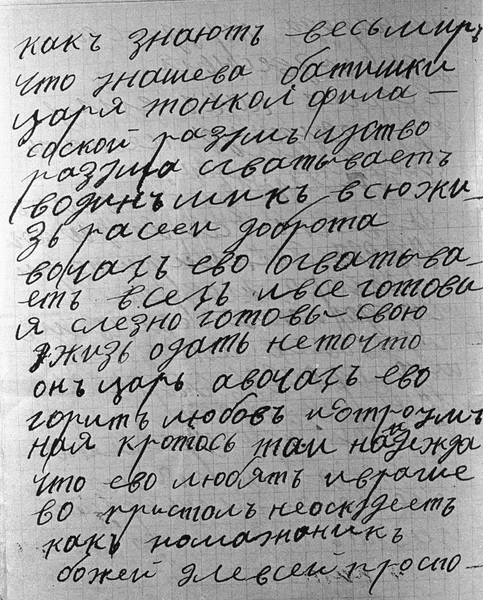 какъ знаютъ весь миръ
что унашева батишки
царя тонкои фила—
соской разумъ и уство
разума огватываетъ
водинъ микъ всюжи—
зь расеи доброта
вочахъ ево огватыва—
етъ всехъ ивсе готовы
я слезно готовы свою
жизь одать не точто
онъ царь авочахъ ево
горитъ любовъ и остроумъ
ная кротось таи надежда
что ево любятъ ивраги
во пристолъ неоскудеетъ
какъ помазоникъ
божей длевсей просто—